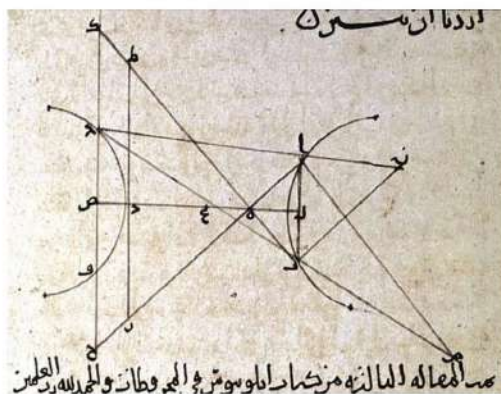 اردنا ان نبين
ك
ط
ا
ص ع ه
ف
تمت المقاله الثالثه من كتاب ابلونيوس في المخروطات والحمد لله رب العلمين